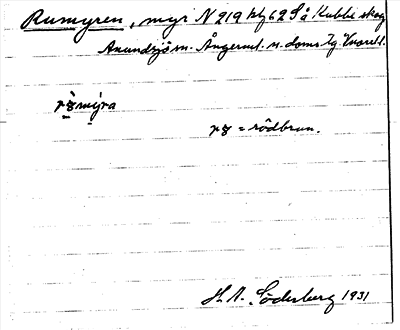 Rumyren, myr N 219 htg 62 S å Kubbe skog
Anundsjö sn. Ångerml. n. doms. Tg.
mýra
= rödbrun.
H. A. Söderberg 1931